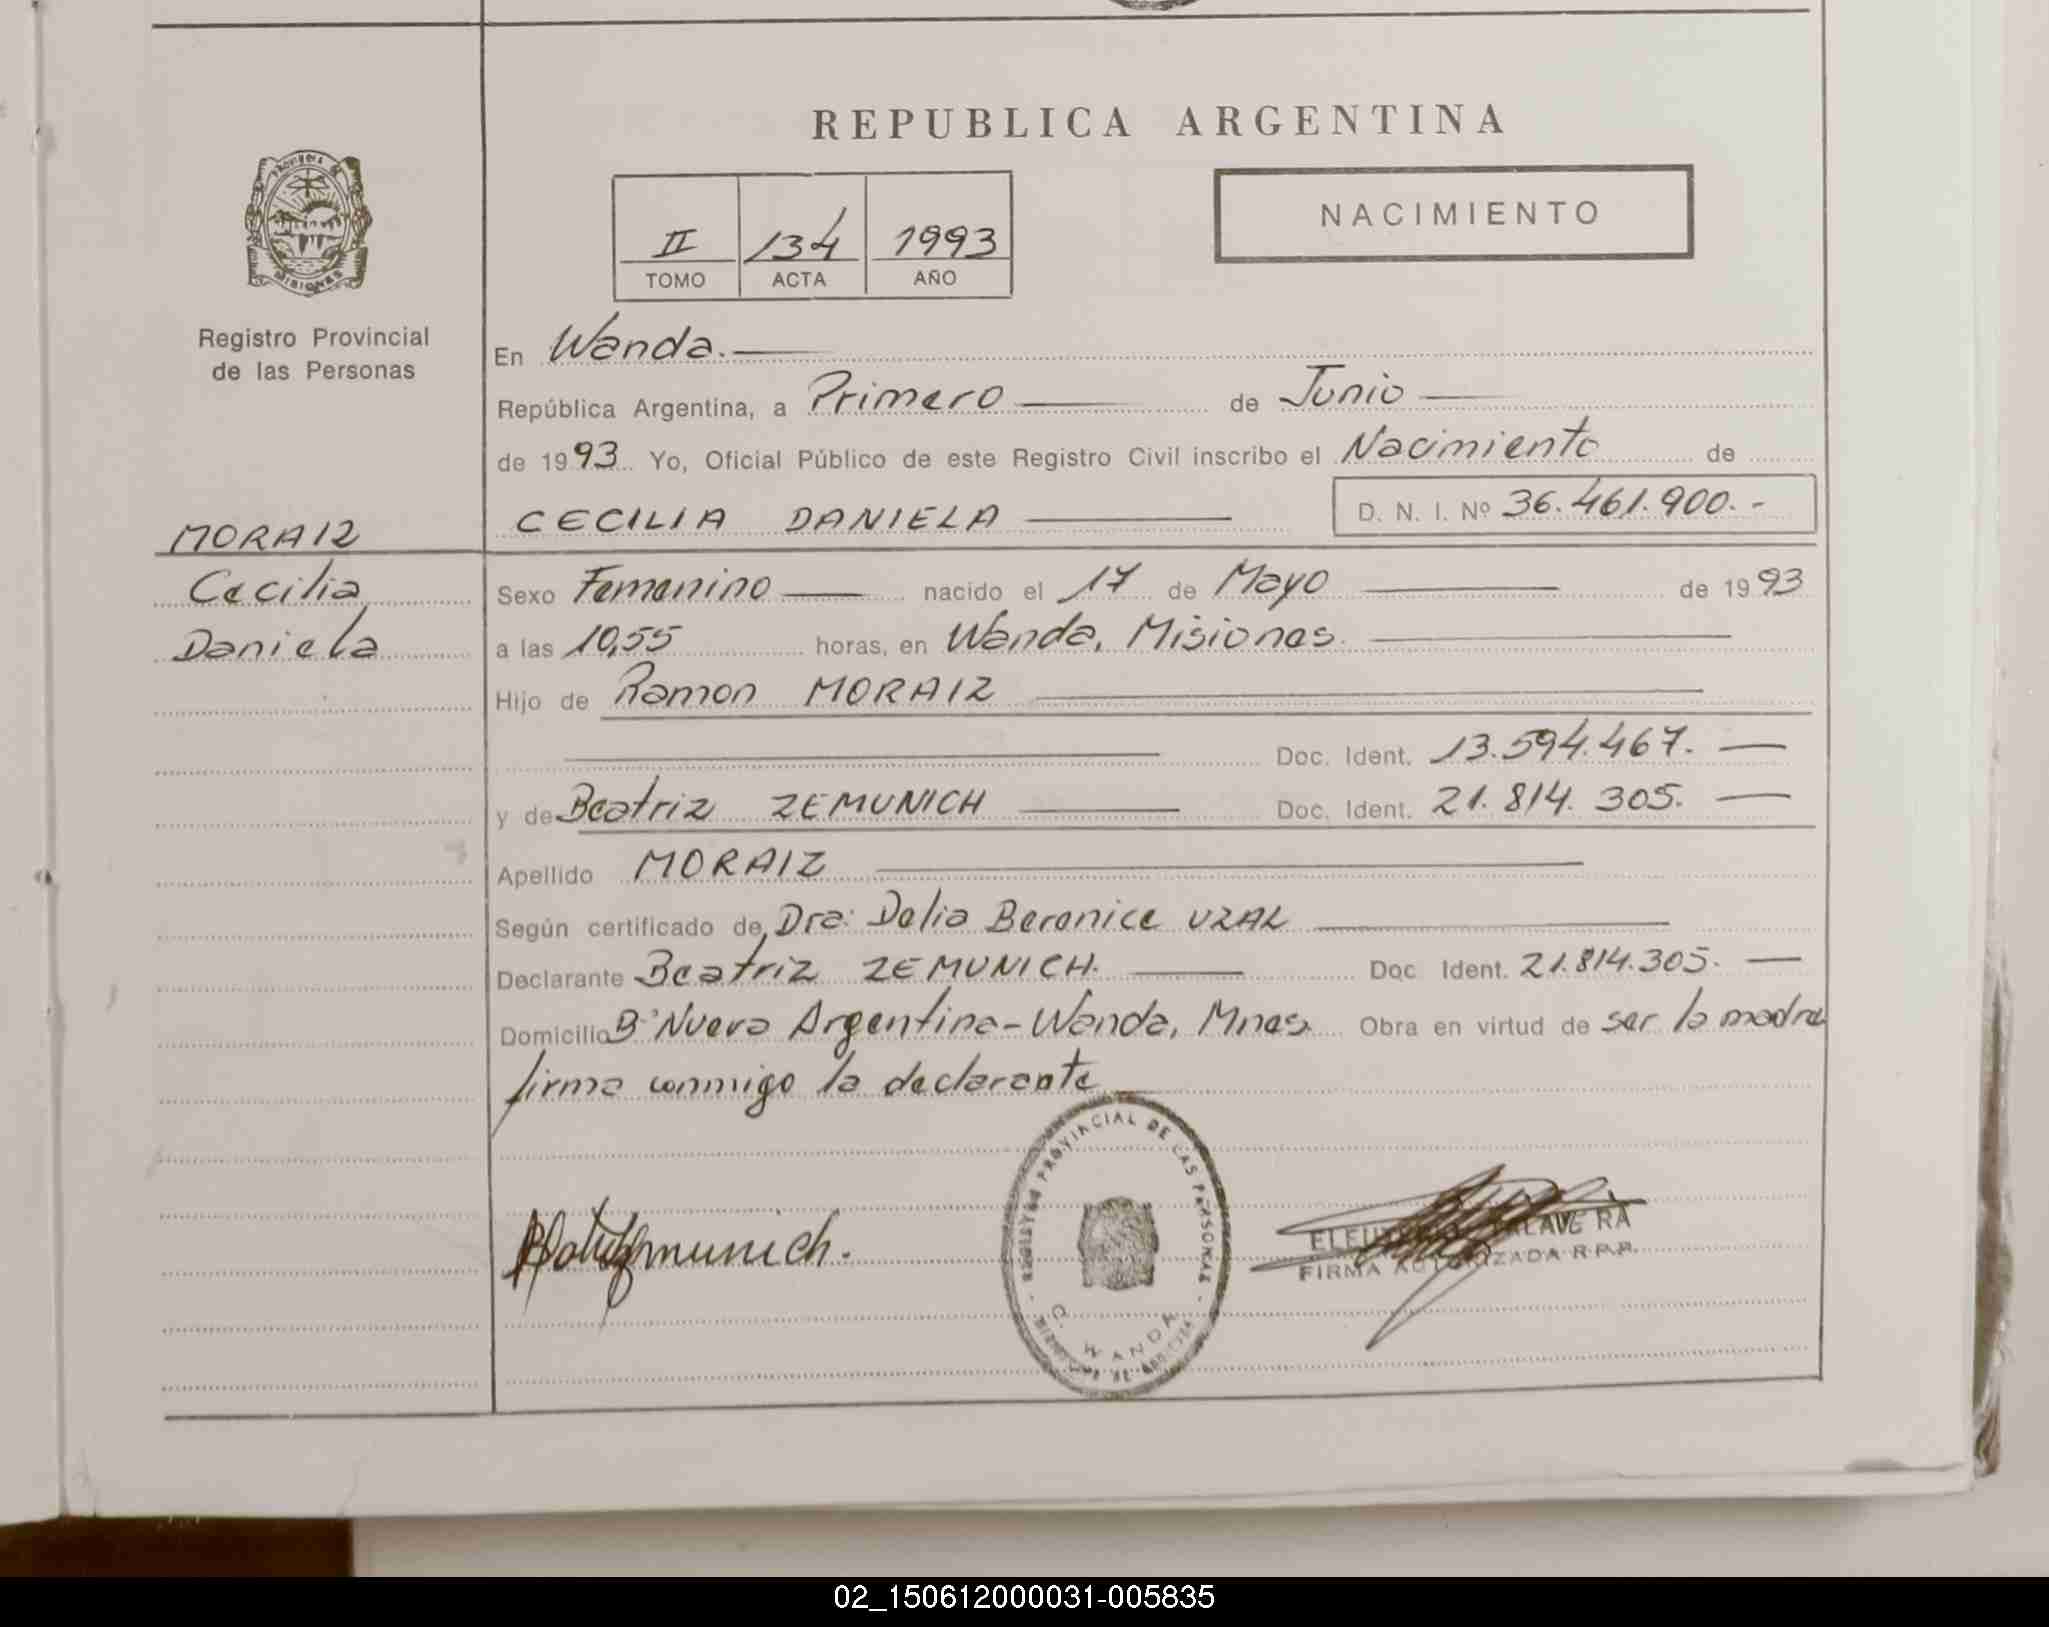 REPUBLICA ARGENTINA
PROVINCIA DE MISIONES
II 134 1993
TOMO ACTA AÑO
NACIMIENTO
Registro Provincial
de las Personas
En Wanda.
República Argentina, a Primero de Junio
de 1993 Yo, Oficial Público de este Registro Civil inscribo el Nacimiento de
CECILIA DANIELA D. N. I. Nº 36.461.900.-
MORAIZ
Cecilia
Daniela
Sexo Femenino nacido el 17 de Mayo de 1993
a las 10,55 horas, en Wanda, Misiones.
Hijo de Ramon MORAIZ
Doc. Ident. 13.594.467.
y de Beatriz ZEMUNICH Doc. Ident. 21.814.305.
Apellido MORAIZ
Según certificado de Dra: Delia Berenice UZAL
Declarante Beatriz ZEMUNICH. Doc. Ident. 21.814.305.
Domicilio Bº Nueva Argentina-Wanda, Mnes. Obra en virtud de ser la madre
firma conmigo la declarante
REGISTRO PROVINCIAL DE LAS PERSONAS
WANDA
TALAVERA
FIRMA AUTORIZADA R.P.P.
02_150612000031-005835